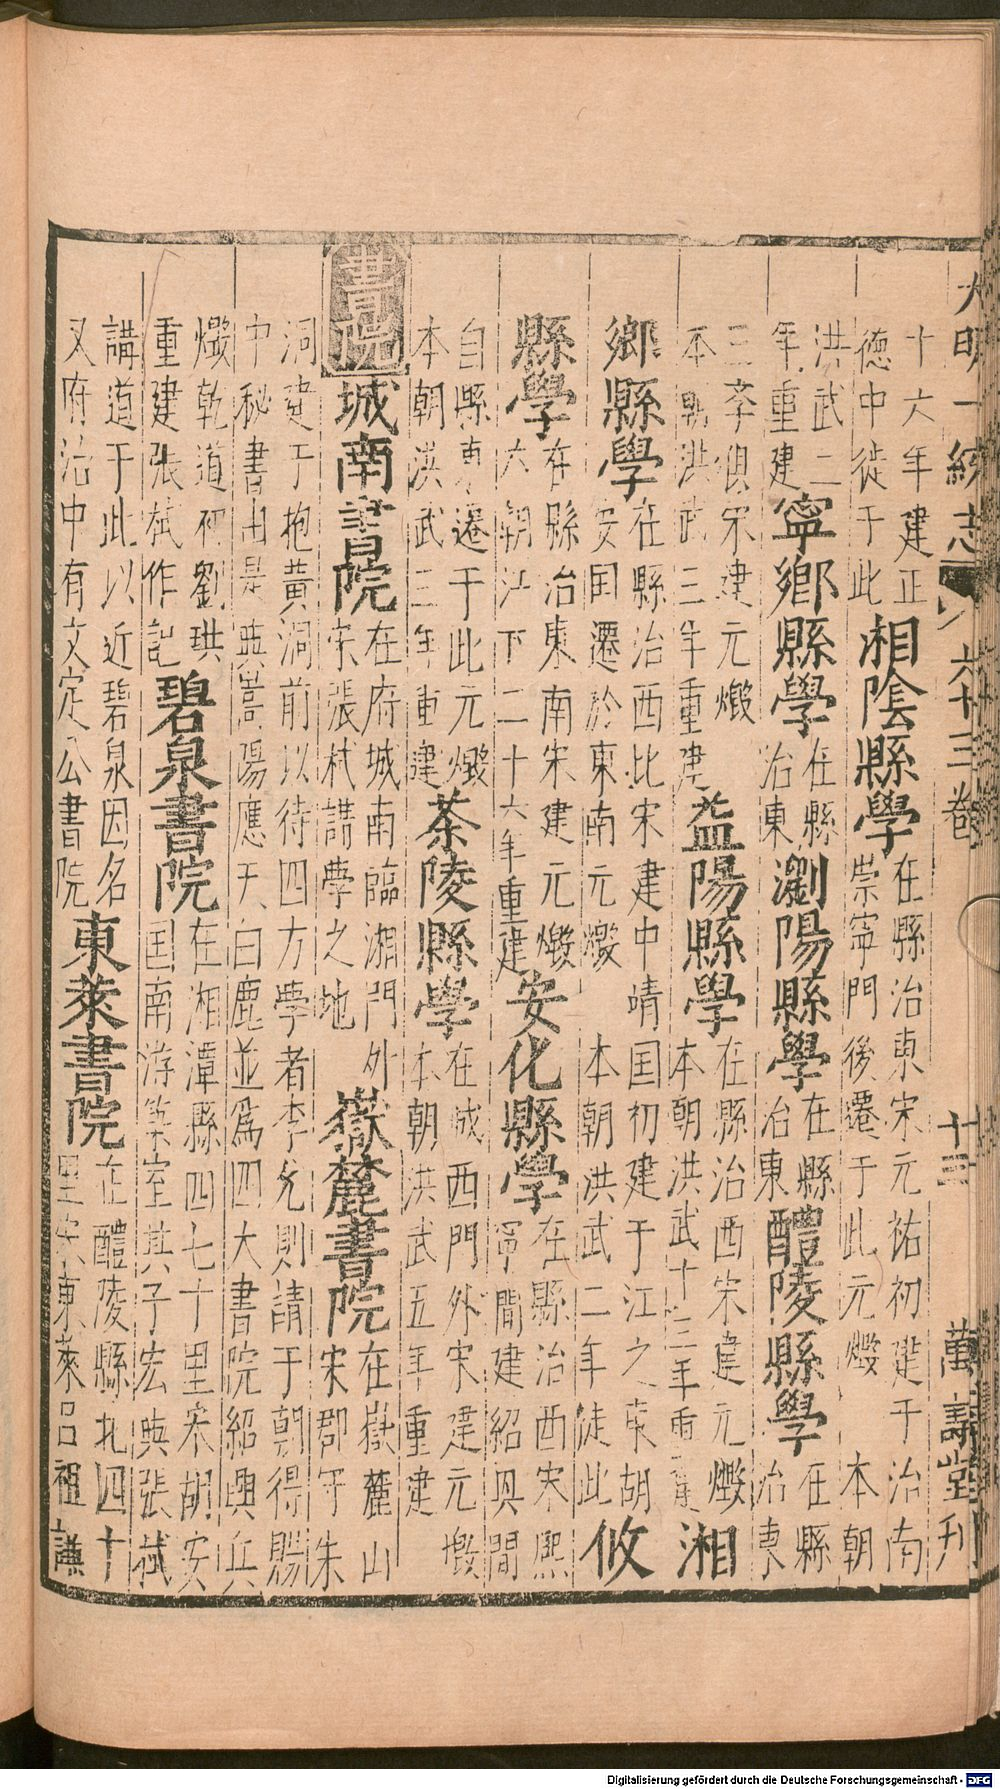 大明一統志 六十三卷 十三 萬壽堂刊
十六年建正
德中徙于此
湘陰縣學
在縣治東宋元祐初建于治南
崇寧門 後遷于此元燬 本朝
洪武二
年重建
寧鄉縣學
在縣
治東
瀏陽縣學
在縣
治東
醴陵縣學
在縣
治東
三李俱宋建元燬
本朝洪武三年重建
益陽縣學
在縣治西宋建元燬
本朝洪武十三年重建
湘
鄉縣學
在縣治西北宋建中靖国初建于江之東胡
安国遷於東南元燬 本朝洪武二年徒此
攸
縣學
在縣治東南宋建元燬
六朝江下二十六年重建
安化縣學
在縣治西宋熙
寧間建紹興間
自縣東遷于此元燬
本朝洪武三年重建
茶陵縣學
在城西門外宋建元燬
本朝洪武五年重建
書院
城南書院
在府城南臨湘門外
宋張栻講學之地
嶽麓書院
在嶽麓山
宋郡守朱
洞建于抱黃洞前以待四方學者李允則請于朝得賜
中秘書由是與嵩陽應天白鹿並為四大書院紹興兵
燬乾道初劉珙
重建張栻作記
碧泉書院
在湘潭縣四七十里宋胡安
国南游築室其子宏與張栻
講道于此以近碧泉因名
又府治中有文定公書院
東萊書院
在醴陵縣北四十
里宋東萊吕祖謙
Digitalisierung gefördert durch die Deutsche Forschungsgemeinschaft - DFG